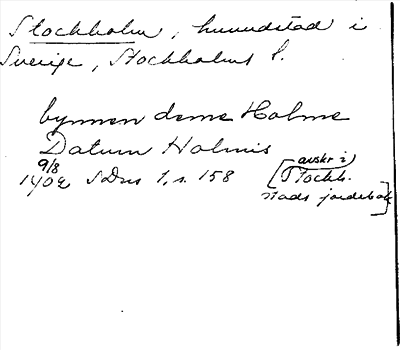 Stockholm, huvudstad i
Sverige, Stockholms l.
bymnen deme Holme
Datum Holmis
9/8
1402 SDns 1, s. 158 [avskr i
Stockh.
stads jordebok]